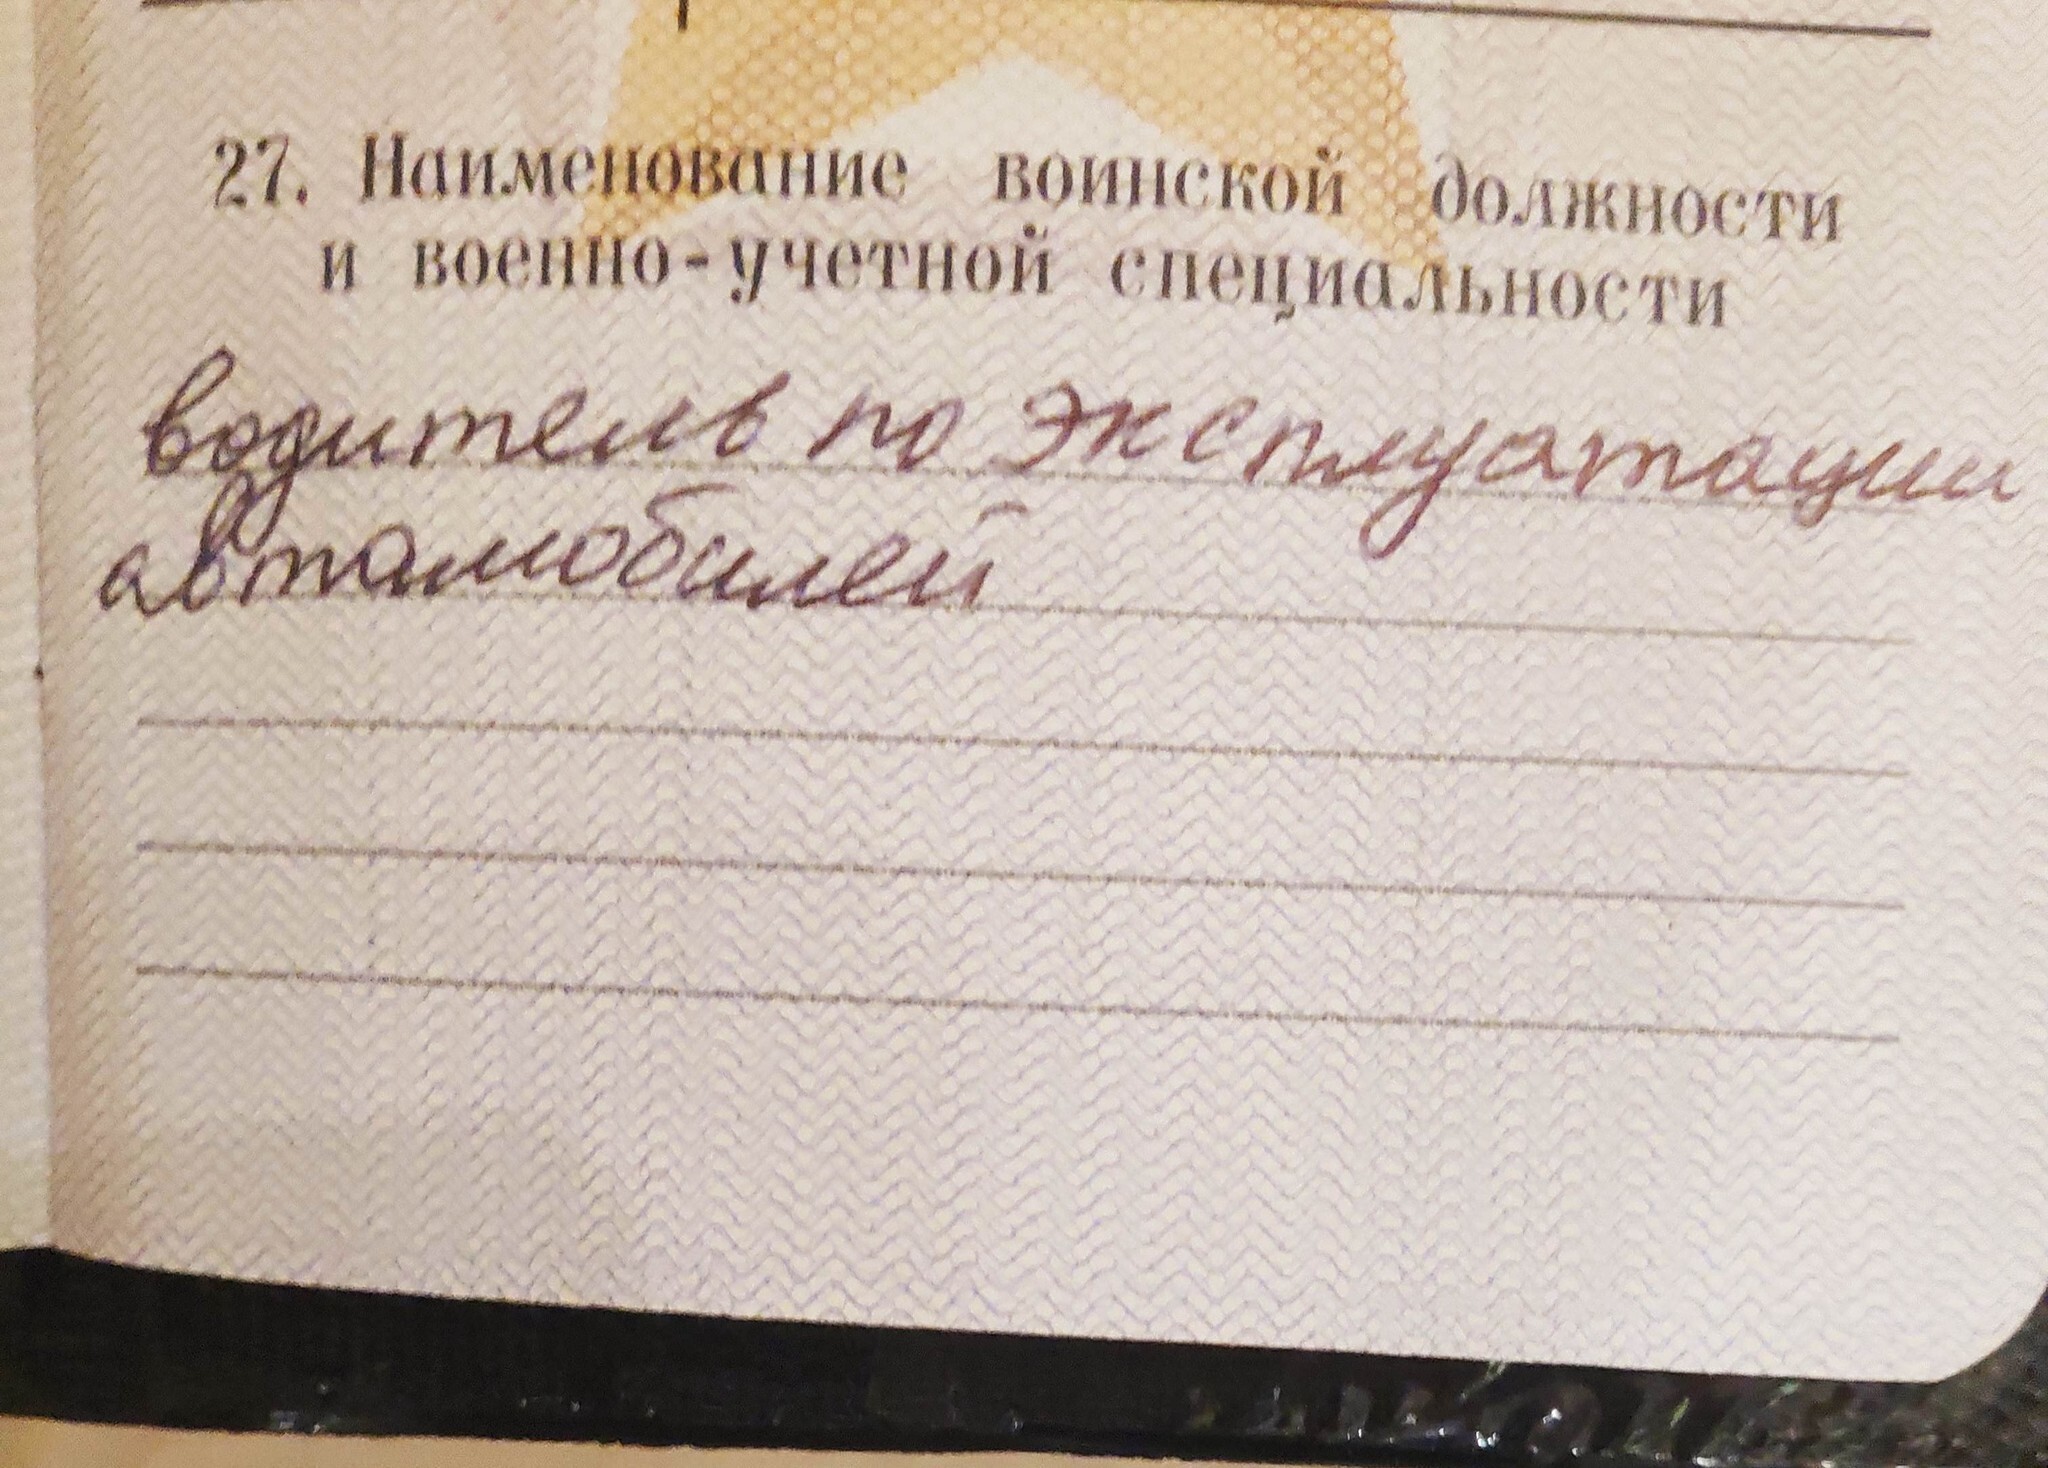 27. Наименование воинской должности
и военно-учетной специальности
водитель по эксплуатации
автомобилей